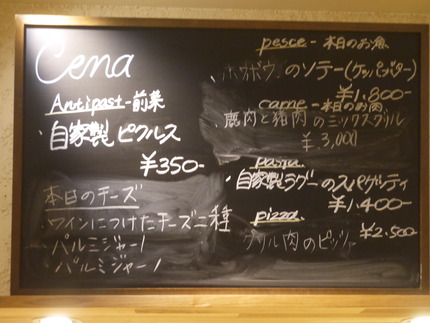 Cena
Antipast-前菜
・自家製ピクルス
¥350-
本日のチーズ
・ワインにつけたチーズ二種
・パルミジャーノ
・パルミジャーノ
pesce-本日のお魚
・ホウボウのソテー(ケッパーバター)
¥1,800-
carne-本日のお肉
・鹿肉と猪肉のミックスグリル
¥3,000
pasta
・自家製ラグーのスパゲッティ
¥1,400-
pizza
¥2,500-
グリル肉のピッツァ